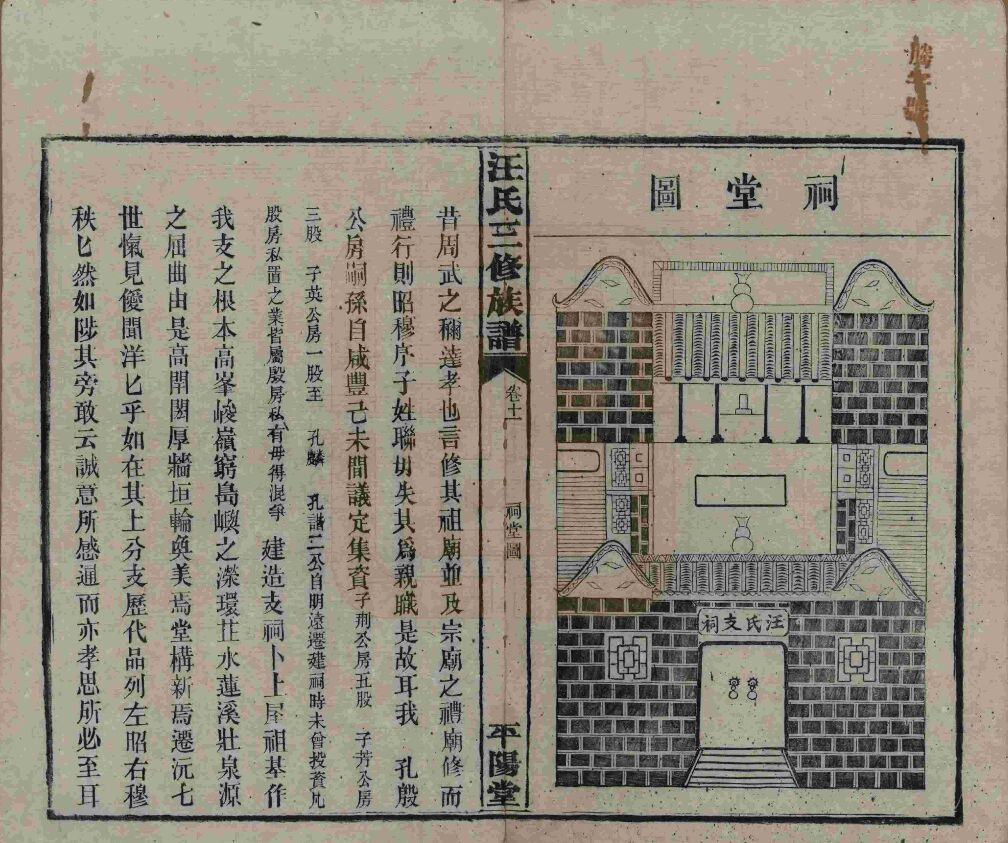 祠堂圖
汪氏支祠
汪氏三修族譜
卷十一
祠堂圖
平陽堂
昔周武之稱達孝也言修其祖廟並及宗廟之禮廟修而
禮行則昭穆序子姓聯切失其為親職是故耳我 孔殷
公房嗣孫自咸豐己未間議定集資子荆公房五股 子芳公房
三股 子英公房一股至 孔麟 孔譜二公自明遠遷建祠時未曾投資凡
殷房私置之業皆屬殷房私有毋得混爭 建造支祠卜上屋祖基作
我支之根本高峯峻嶺窮島嶼之濚環茳水蓮溪壯泉源
之屈曲由是高閈閎厚牆垣輪奐美焉堂構新焉遷沅七
世愾見僾聞洋匕乎如在其上分支歷代品列左昭右穆
秩匕然如陟其旁敢云誠意所感通而亦孝思所必至耳